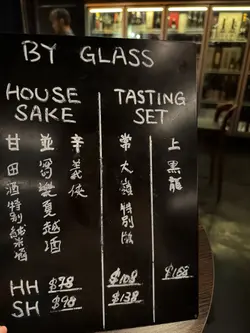 BY GLASS
HOUSE
SAKE
甘
田酒特別純米酒
並
夏越酒
辛
義侠
HH $78
SH $98
TASTING
SET
常
特別版
$108
$138
上
黒龍
$168